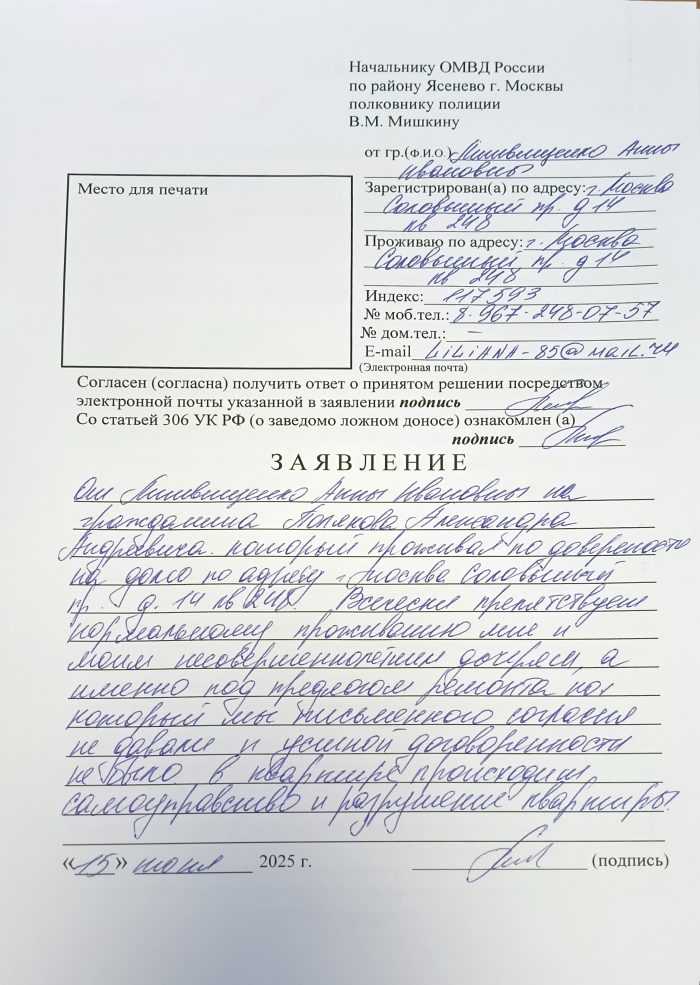 Начальнику ОМВД России
по району Ясенево г. Москвы
полковнику полиции
В.М. Мишкину
от гр.(Ф.И.О.) Анны
Ивановны
Место для печати
Зарегистрирован(а) по адресу: г. Москва
Соловьиный пр. д 14
кв 248
Проживаю по адресу: г. Москва
Соловьиный пр. д 14
кв 248
Индекс: 117593
№ моб.тел.: 8-967-248-07-57
№ дом.тел.: —
E-mail LiLiANA-85@mail.ru
(Электронная почта)
Согласен (согласна) получить ответ о принятом решении посредством
электронной почты указанной в заявлении подпись
Со статьей 306 УК РФ (о заведомо ложном доносе) ознакомлен (а)
подпись
ЗАЯВЛЕНИЕ
От Анны Ивановны на
гражданина Александра
Андреевича. который проживая по
на долю по адресу г. Москва Соловьиный
пр. д. 14 кв 248. Всячески препятствует
нормальному проживанию мне и
моим несовершеннолетним дочерям, а
именно под предлогом ремонта на
который мы письменного согласия
не давали и устной договоренности
не было в квартире происходит
самоуправство и разрушение квартиры.
«15» июня 2025 г. (подпись)